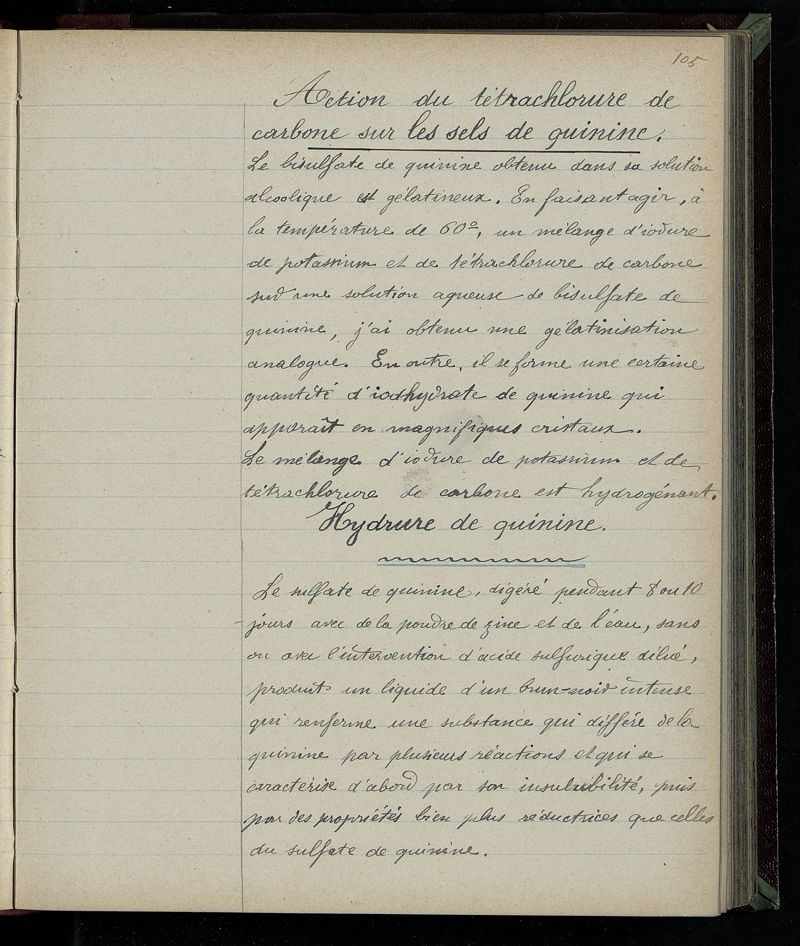 105
Action du tétrachlorure de
carbone sur les sels de quinine.
Le bisulfate de quinine obtenu dans sa solution
alcoolique est gélatineux. En faisant agir, à
la température de 60°, un mélange d'iodure
de potassium et de tétrachlorure de carbone
sur une solution aqueuse de bisulfate de
quinine, j'ai obtenu une gélatinisation
analogue. En outre, il se forme une certaine
quantité d'iodhydrate de quinine qui
apparaît en magnifiques cristaux.
Le mélange d'iodure de potassium et de
tétrachlorure de carbone est hydrogénant.
Hydrure de quinine.
Le sulfate de quinine, digéré pendant 8 ou 10
jours avec de la poudre de zinc et de l'eau, sans
ou avec l'intervention d'acide sulfurique dilué,
produit un liquide d'un brun-noir intense
qui renferme une substance qui diffère de la
quinine par plusieurs réactions et qui se
caractérise d'abord par son insolubilité, puis
par des propriétés bien plus réductrices que celles
du sulfate de quinine.